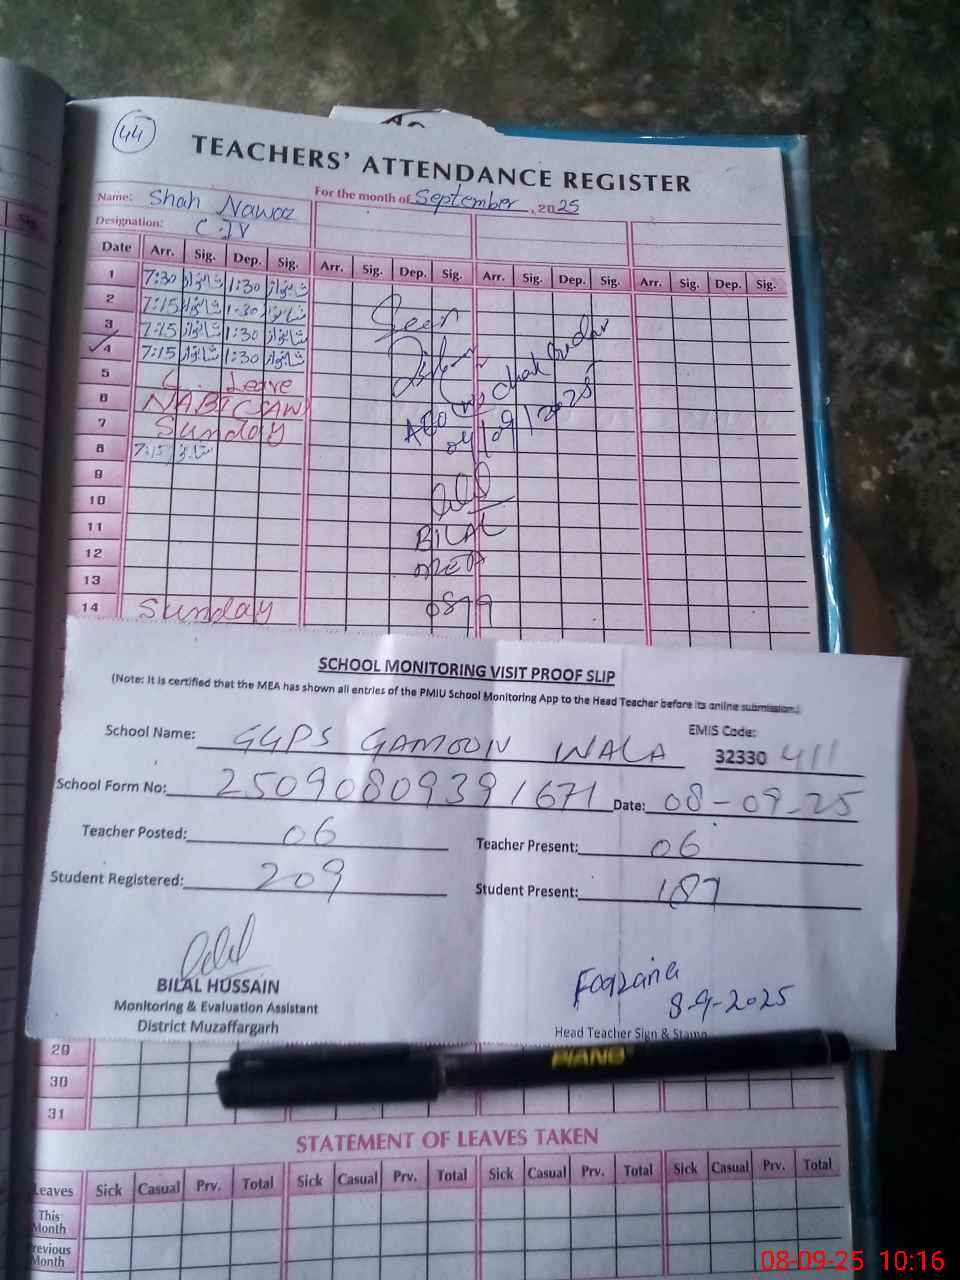 44
TEACHERS' ATTENDANCE REGISTER
Name: Shah Nawaz
For the month of September, 2025
Designation: C.IV
Date Arr. Sig. Dep. Sig. Arr. Sig. Dep. Sig. Arr. Sig. Dep. Sig. Arr. Sig. Dep. Sig.
1 7:30 شاہنواز 1:30 شاہنواز
2 7:15 شاہنواز 1:30 شاہنواز
3 7:15 شاہنواز 1:30 شاہنواز
4 7:15 شاہنواز 1:30 شاہنواز
5 C. Leave
6 NABI(SAW)
7 Sunday
8 7:15 شاہنواز
9
10
11
12
13
14 Sunday
Seen
AEO
04/09/2025
BILAL
MEA
0899
SCHOOL MONITORING VISIT PROOF SLIP
(Note: It is certified that the MEA has shown all entries of the PMIU School Monitoring App to the Head Teacher before its online submission.)
School Name: GGPS GAMOON WALA
EMIS Code: 32330 411
School Form No: 25090809391671 Date: 08-09-25
Teacher Posted: 06 Teacher Present: 06
Student Registered: 209 Student Present: 187
BILAL HUSSAIN
Monitoring & Evaluation Assistant
District Muzaffargarh
Foazana
8-9-2025
Head Teacher Sign & Stamp
29
30
31
PIANO
STATEMENT OF LEAVES TAKEN
Leaves Sick Casual Prv. Total Sick Casual Prv. Total Sick Casual Prv. Total Sick Casual Prv. Total
This Month
Previous Month
08-09-25 10:16